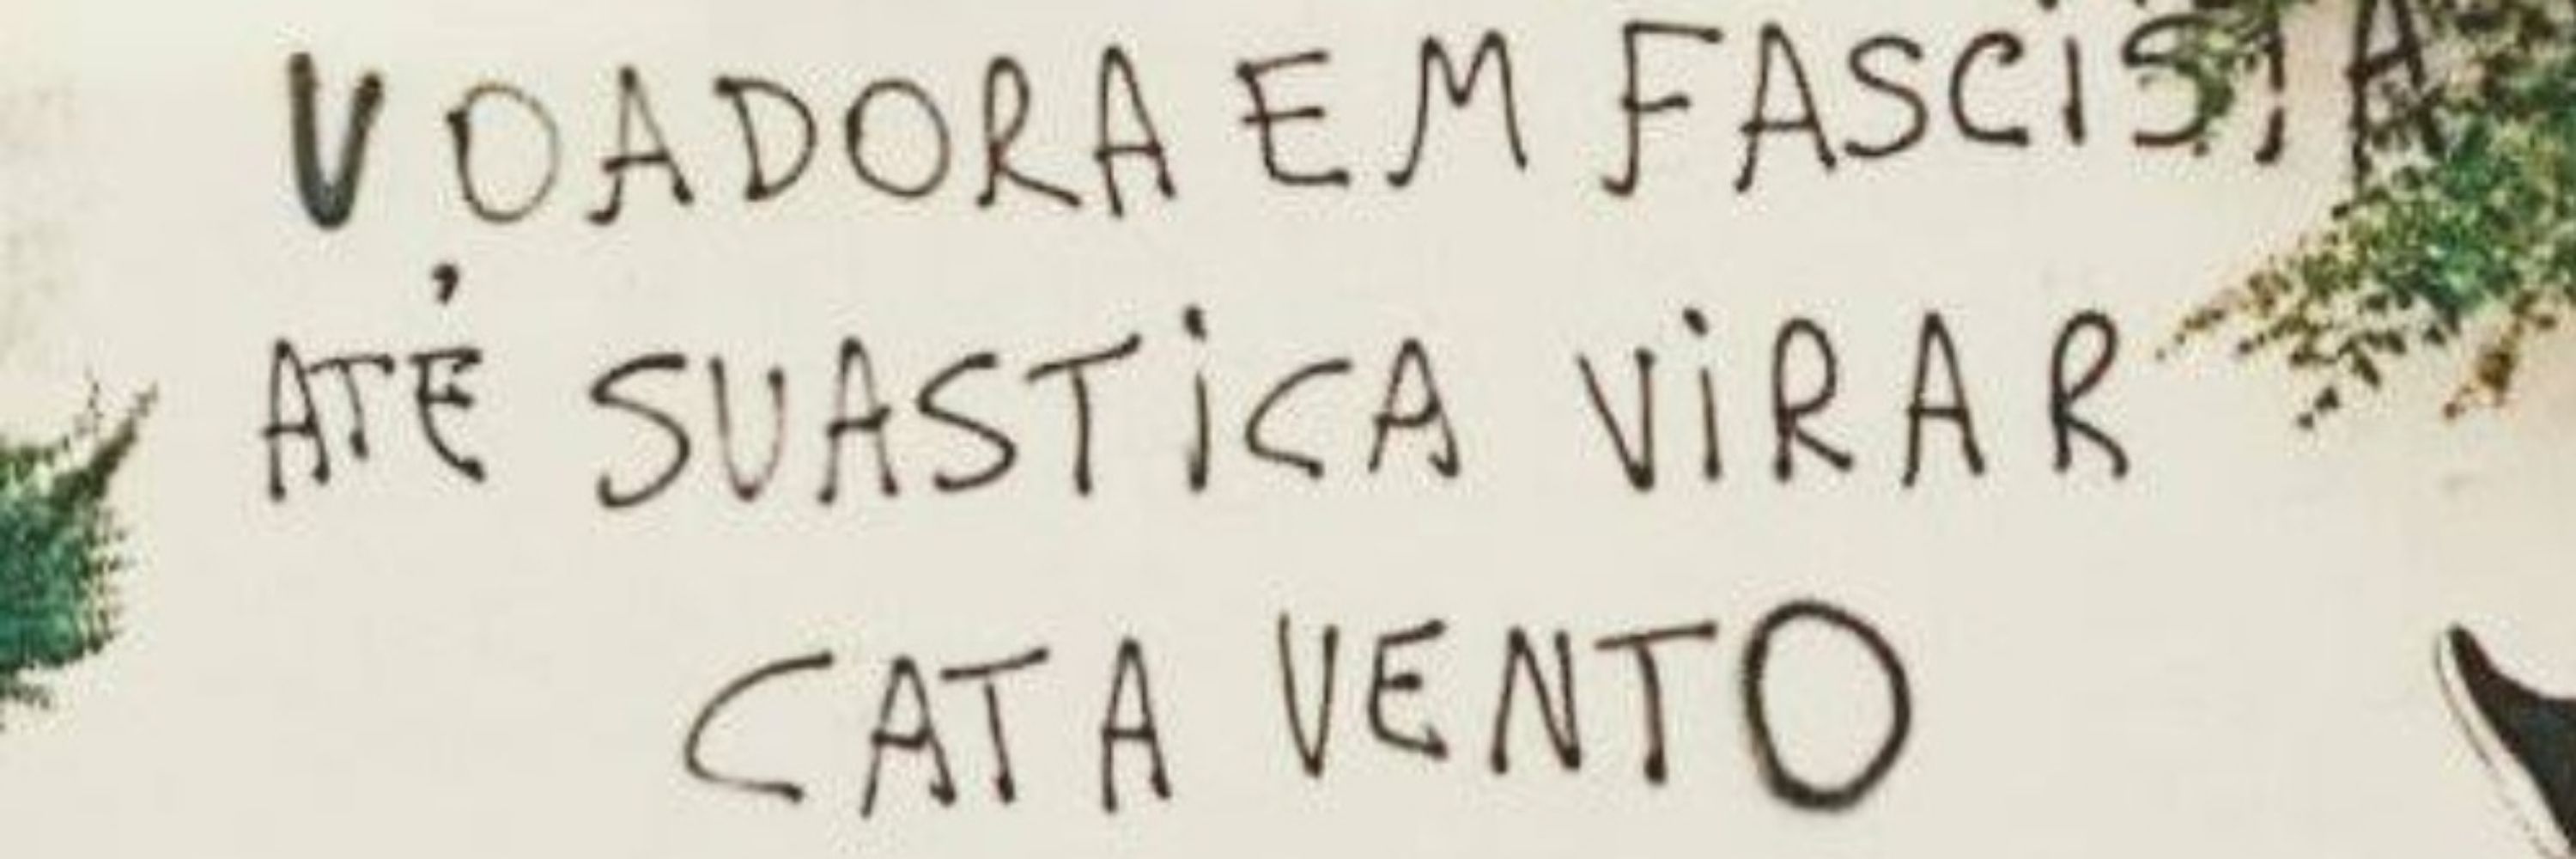 VOADORA EM FASCISTA
ATÉ SUASTICA VIRAR
CATA VENTO